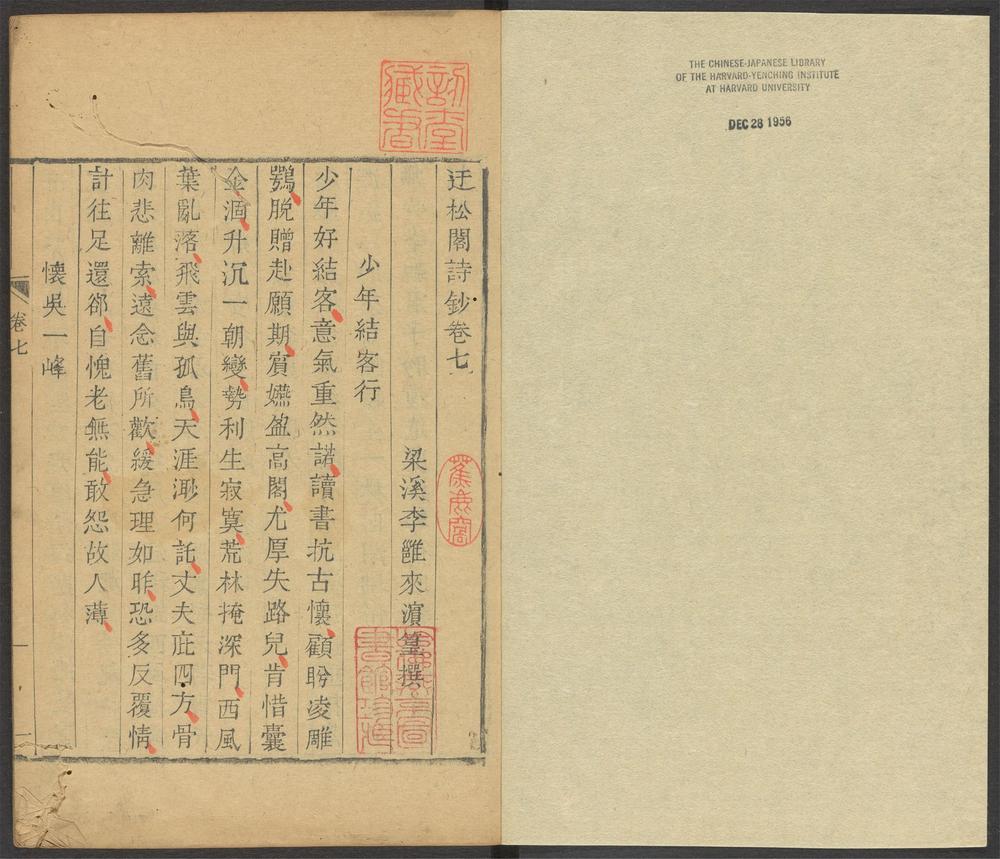 THE CHINESE-JAPANESE LIBRARY
OF THE HARVARD-YENCHING INSTITUTE
AT HARVARD UNIVERSITY
DEC 28 1956
訒堂藏書
迂松閣詩鈔卷七
蕉鹿窩
梁溪李雝來濵篁撰
少年結客行
少年好結客意氣重然諾讀書抗古懷顧盻凌雕
鶚脫贈赴願期賔嬿盈高閣尤厚失路兒肯惜囊
金涸升沉一朝變勢利生寂寞荒林掩深門西風
葉亂落飛雲與孤鳥天涯渺何託丈夫庇四方骨
肉悲離索遠念舊所歡緩急理如昨恐多反覆情
計往足還郤自愧老無能敢怨故人薄
懷吳一峰
卷七
一